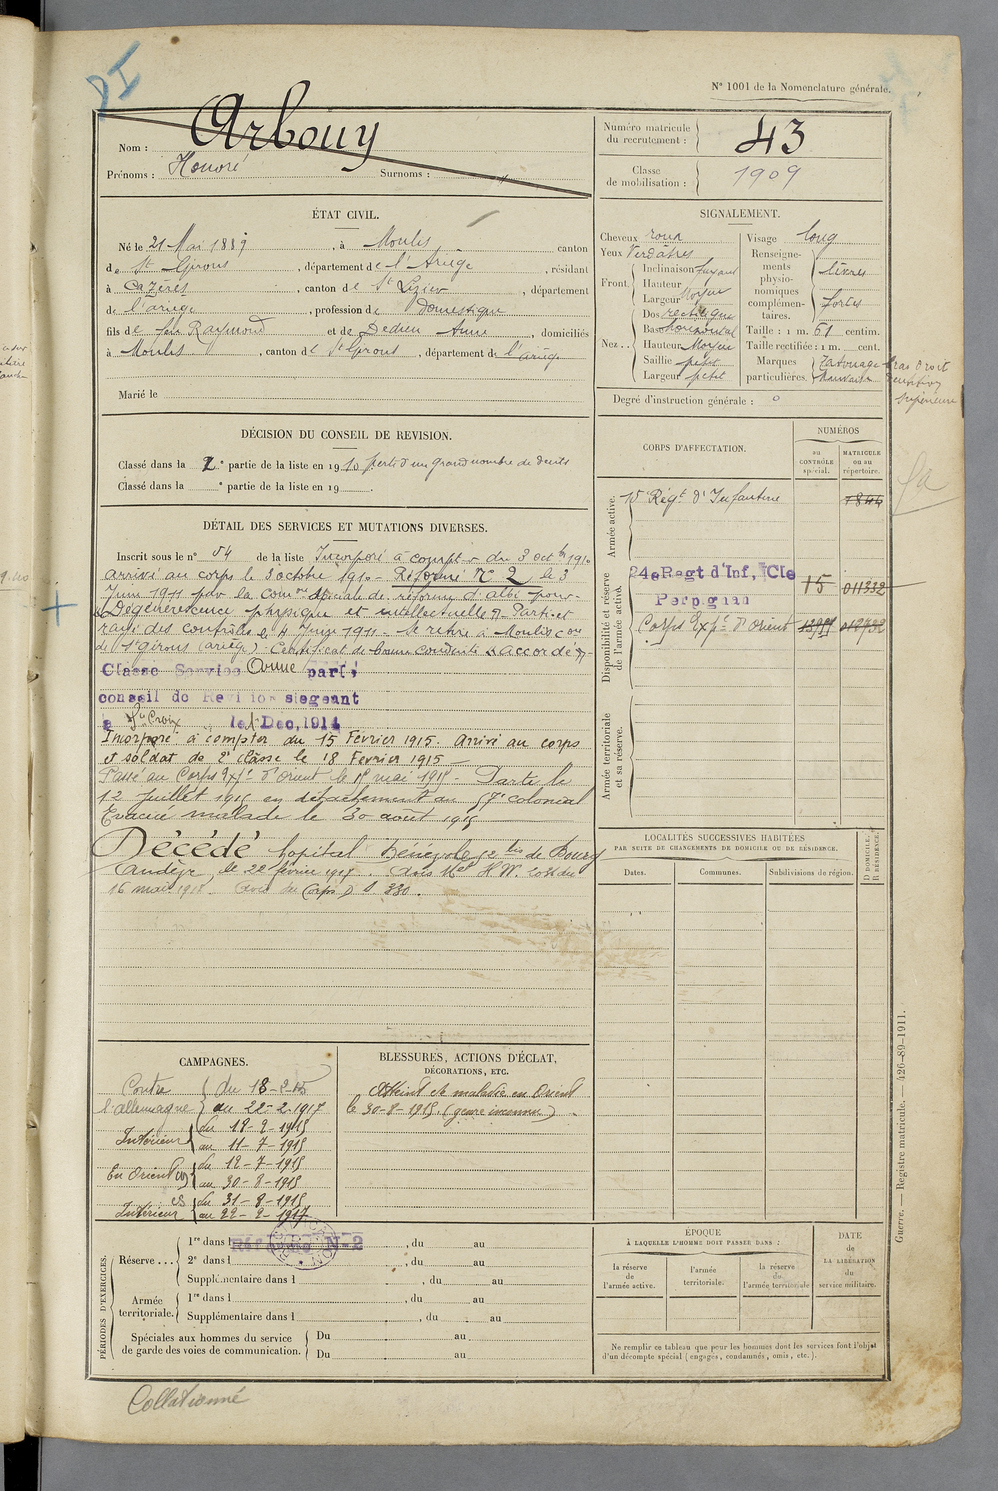 N° 1001 de la Nomenclature générale.
Nom : Arbouy
Prénoms : Honoré Surnoms :
Numéro matricule du recrutement : 43
Classe de mobilisation : 1909
ÉTAT CIVIL.
Né le 21 Mai 1889, à Moulis canton
de St Girons, département de l'Ariège, résidant
à Cazères, canton de St Lizier, département
de l'ariège, profession de Domestique
fils de feu Raymond et de Dedieu Anne, domiciliés
à Moulis, canton de St Girons, département de l'ariège
Marié le
SIGNALEMENT.
Cheveux roux
Yeux Verdâtres
Front. Inclinaison fuyant
Hauteur
Largeur Moyen
Nez... Dos rectiligne
Base horizontal
Hauteur Moyen
Saillie petit
Largeur petit
Visage long
Renseignements physionomiques complémentaires. lèvres fortes
Taille : 1 m. 61 centim.
Taille rectifiée : 1 m. cent.
Marques particulières. Tatouage bras droit
supérieure
Degré d'instruction générale : 0
DÉCISION DU CONSEIL DE REVISION.
Classé dans la 2e partie de la liste en 1910. perte d'un grand nombre de dents
Classé dans la e partie de la liste en 19
DÉTAIL DES SERVICES ET MUTATIONS DIVERSES.
Inscrit sous le n° 54 de la liste Incorporé à compter du 3 octbre 1910
arrivé au corps le 3 octobre 1910 - Réformé N° 2 le 3
Juin 1911 par la comon spéciale de réforme d'albi pour
"Dégénérescence physique et intellectuelle". Parti et
rayé des contrôles le 4 Juin 1911. Se retire à Moulis con
de St girons (ariège). Certificat de bonne conduite accordé
Classé Service Armé par le
conseil de Revision siegeant
a Ste Croix le 1 Dec, 1914
Incorporé à compter du 15 Février 1915. Arrivé au corps
et soldat de 2e classe le 18 Février 1915 —
Passé au Corps Expre d'Orient le mai 1915 - Parti le
12 juillet 1915 en détachement au 57e colonial
Evacué malade le 30 août 1915
Décédé hopital Bénévole 52 bis de Bourg
Madame le 22 février 1917. Avis
16 mai 1917. Avis du Corps D 330.
CORPS D'AFFECTATION.
NUMÉROS
au CONTRÔLE spécial.
MATRICULE ou au répertoire.
Armée active.
15e Régt d'Infanterie 7844
Disponibilité et réserve de l'armée active.
24e Regt d'Inf, Cie 15 011332
Perpignan
Corps Expre d'Orient
Armée territoriale et sa réserve.
LOCALITÉS SUCCESSIVES HABITÉES
PAR SUITE DE CHANGEMENTS DE DOMICILE OU DE RÉSIDENCE.
Dates. Communes. Subdivisions de région. D DOMICILE. R RÉSIDENCE.
CAMPAGNES.
Contre l'allemagne du 18-2-15
au 22-2-1917
Intérieur du 18-2-1915
au 11-7-1915
En Orient du 12-7-1915
au 30-8-1915
Intérieur du 31-8-1915
au 22-2-1917
BLESSURES, ACTIONS D'ÉCLAT,
DÉCORATIONS, ETC.
Atteint de maladie en Orient
le 30-8-1915. (genre inconnu)
PÉRIODES D'EXERCICES.
Réserve... 1re dans l , du au
Réformé N-2
2e dans l , du au
Supplémentaire dans l , du au
Armée territoriale. 1re dans l , du au
Supplémentaire dans l , du au
Spéciales aux hommes du service de garde des voies de communication. Du au
Du au
ÉPOQUE
À LAQUELLE L'HOMME DOIT PASSER DANS :
la réserve de l'armée active.
l'armée territoriale.
la réserve de l'armée territoriale
DATE de LA LIBÉRATION du service militaire.
Ne remplir ce tableau que pour les hommes dont les services font l'objet
d'un décompte spécial (engagés, condamnés, omis, etc.).
Guerre. — Registre matricule. — 426-89-1911.
Collationné